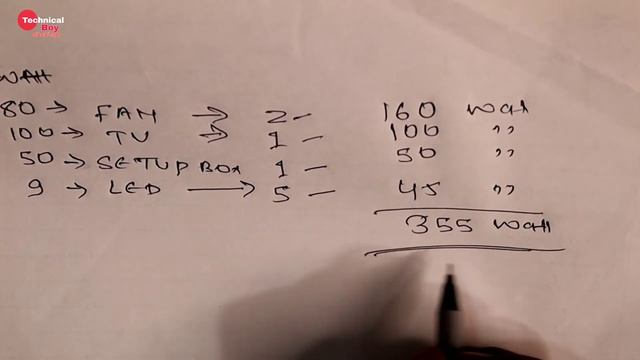 Technical
Boy
WAH
80 → FAN → 2 – 160 Watt
100 → TV → 1 – 100 ,,
50 → SETUP BOX 1 – 50 ,,
9 → LED → 5 – 45 ,,
355 Watt